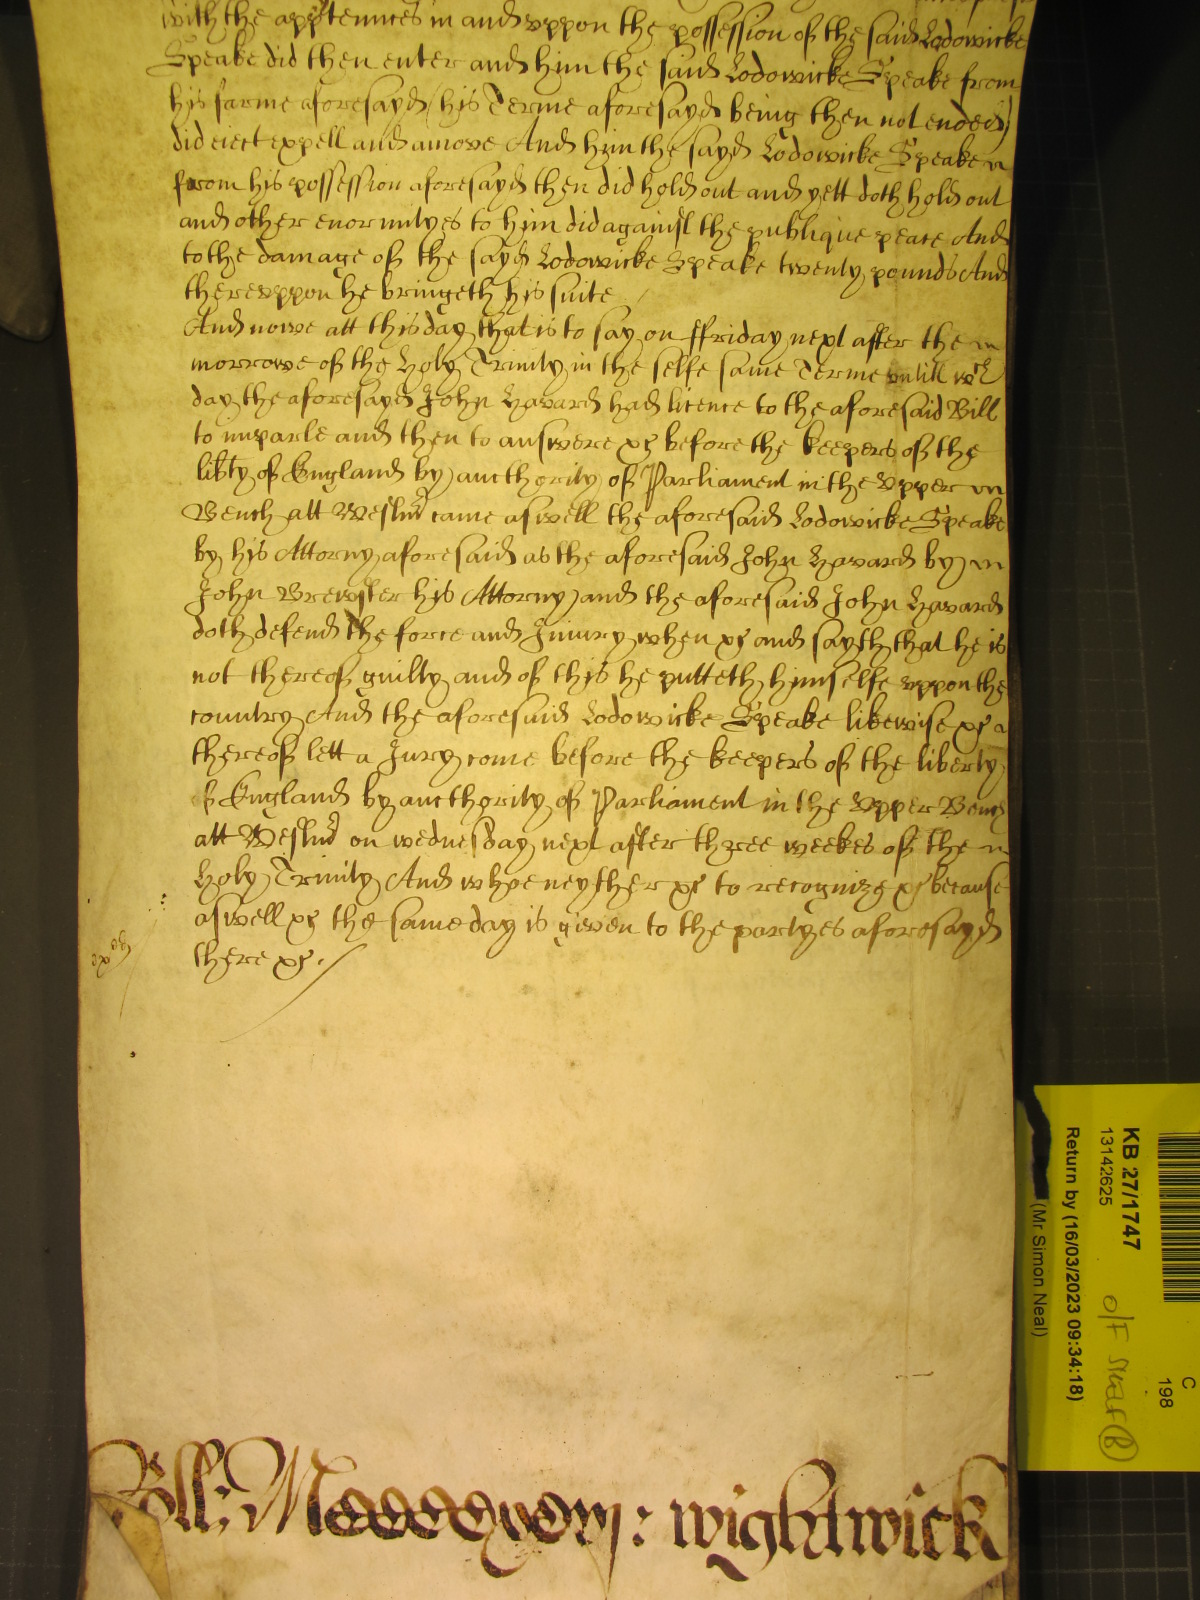 with the apptennces in and vppon the possession of the said Lodowicke
Speake did then enter and him the said Lodowicke Speake from
his farme aforesayd (his Terme aforesayd being then not ended)
did eiect expell and amove And him the sayd Lodowicke Speake
from his possession aforesayd then did hold out and yett doth hold out
and other enormityes to him did against the publique peace And
to the damage of the sayd Lodowicke Speake twenty pounds And
therevppon he bringeth his suite
And nowe att this day that is to say on ffriday next after the
morrowe of the Holy Trinity in the selfe same Terme vntill wch
day the aforesayd John Havard had licence to the aforesaid Bill
to imparle and then to answere &c before the keepers of the
libty of England by aucthority of Parliament in the Vpper
Bench att Westmr came aswell the aforesaid Lodowicke Speake
by his Attorny aforesaid as the aforesaid John Havard by
John Brewster his Attorny and the aforesaid John Havard
doth defend the force and Iniury when &c and sayth that he is
not thereof guilty and of this he putteth himselfe vppon the
country And the aforesaid Lodowicke Speake likewise &c
thereof lett a Jury come before the keepers of the liberty
of England by aucthority of Parliament in the Vpper Bench
att Westmr on wednesday next after three weekes of the
Holy Trinity And whoe neyther &c to recognize &c because
aswell &c the same day is given to the partyes aforesayd
there &c.
Roll: wightwick
KB 27/1747
13142625
Return by (16/03/2023 09:34:18)
(Mr Simon Neal)
C
198
O/F